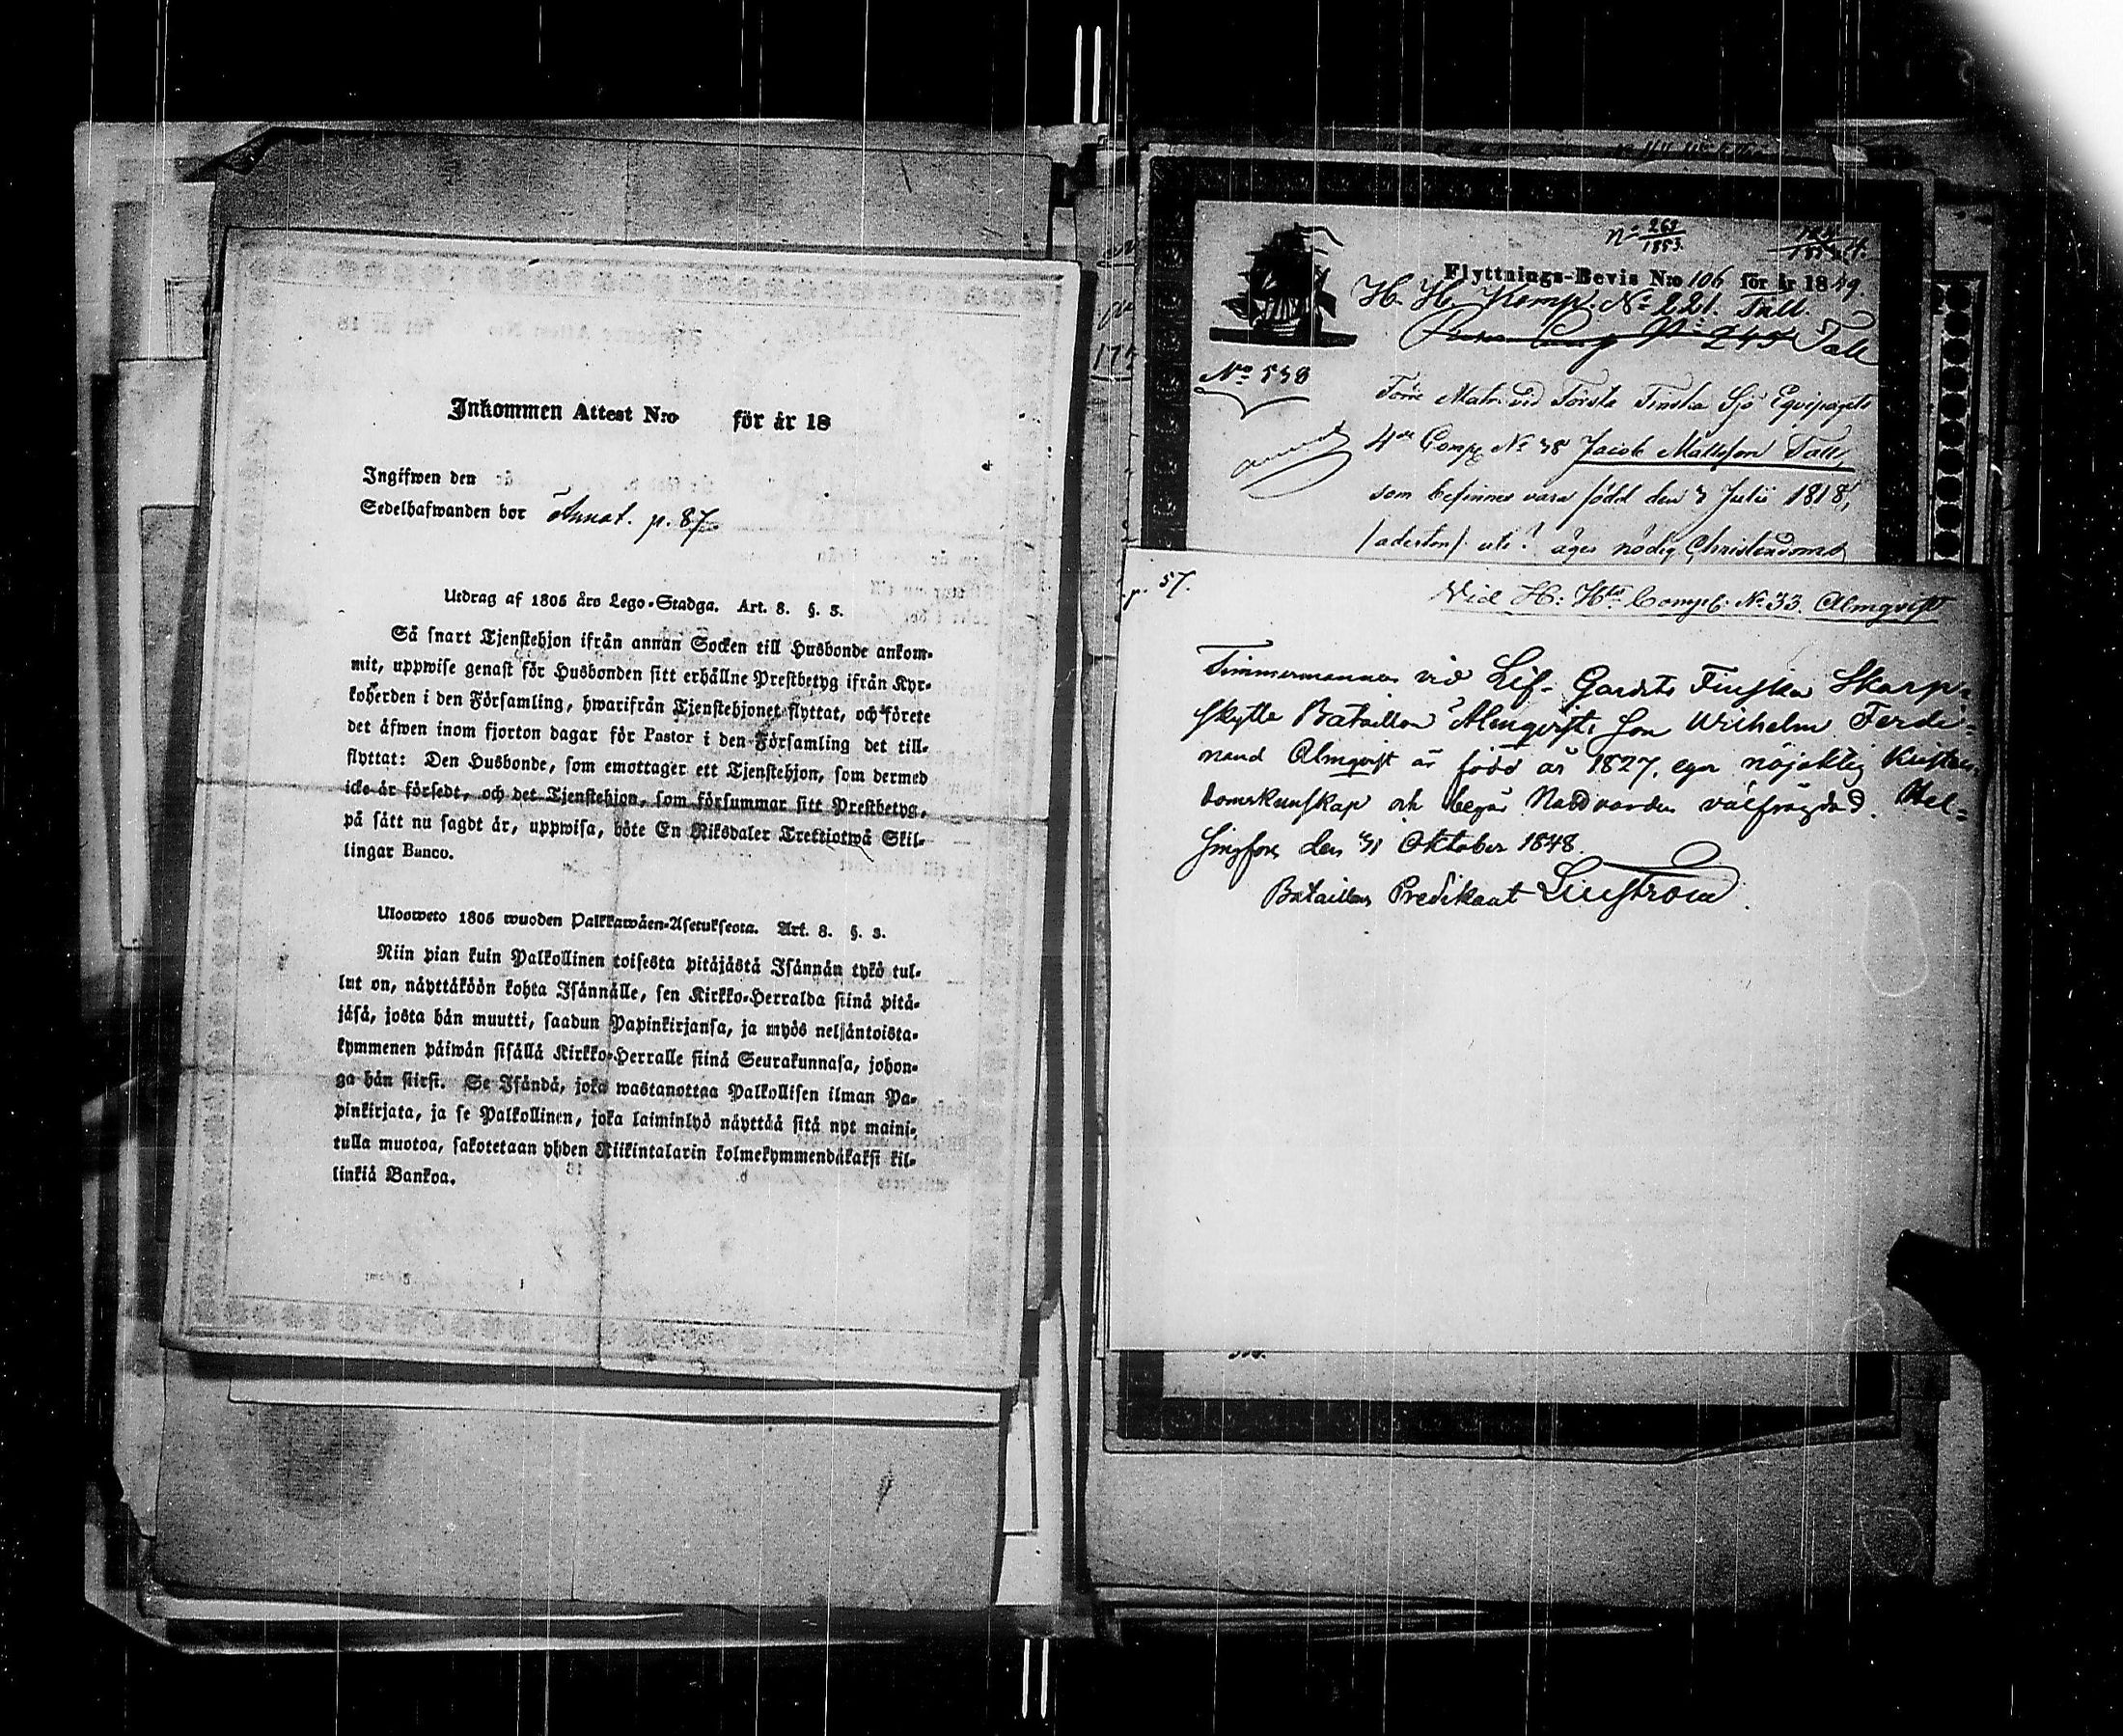 Inkommen Attest N:o för år 18
Ingifwen den
Sedelhafwanden bor Annot. p. 87.
Utdrag af 1805 års Lego-Stadga. Art. 8. §. 3.
Så snart Tjenstehjon ifrån annan Socken till Husbonde ankom-
mit, uppwise genast för Husbonden sitt erhållne Prestbetyg ifrån Kyr-
koherden i den Församling, hwarifrån Tjenstehjonet flyttat, och förete
det äfwen inom fjorton dagar för Pastor i den Församling det till-
flyttat: Den Husbonde, som emottager ett Tjenstehjon, som dermed
icke är försedt, och det Tjenstehjon, som försummar sitt Prestbetyg,
på sätt nu sagdt är, uppwisa, böte En Riksdaler Trettiotwå Skil-
lingar Banco.
Ulosweto 1805 wuoden Palkkawäen-Asetuksesta. Art. 8. §. 3.
Niin pian kuin Palkollinen toisesta pitäjästä Isännän tykö tul-
lut on, näyttäköön kohta Isännälle, sen Kirkko-Herralda siinä pitä-
jäsä, josta hän muutti, saadun Papinkirjansa, ja myös neljäntoista-
kymmenen päiwän sisällä Kirkko-Herralle siinä Seurakunnasa, johon-
ga hän siirsi. Se Isändä, joka wastanottaa Palkollisen ilman Pa-
pinkirjata, ja se Palkollinen, joka laiminlyö näyttää sitä nyt maini-
tulla muotoa, sakotetaan yhden Riikintalarin kolmekymmendäkaksi kil-
linkiä Bankoa.
N:o 268
1853.
Flyttnings-Bevis N:o 106 för år 1849.
H. H. Komp. No 221. Tall.
No 245 Tall
No 538
Förre Matr. vid Första Finska Sjö Eqvipagets
4de Comp. No 38 Jacob Mattsson Tall,
som befinnes vara född den 3 Julii 1818,
/aderton/ äger nödig Christendoms
p. 57.
Vid H: Hts Comp: No 33 Almqvist
Timmermannen vid Lif-Gardets Finska Skarp-
skytte Bataillon Almqvists son Wilhelm Ferdi-
nand Almqvist är född år 1827, eger nöjaktig Kristen-
domskunskap och begår Nattvarden välfrägdad. Hel-
singfors den 31 Oktober 1848.
Bataillons Predikant Linström